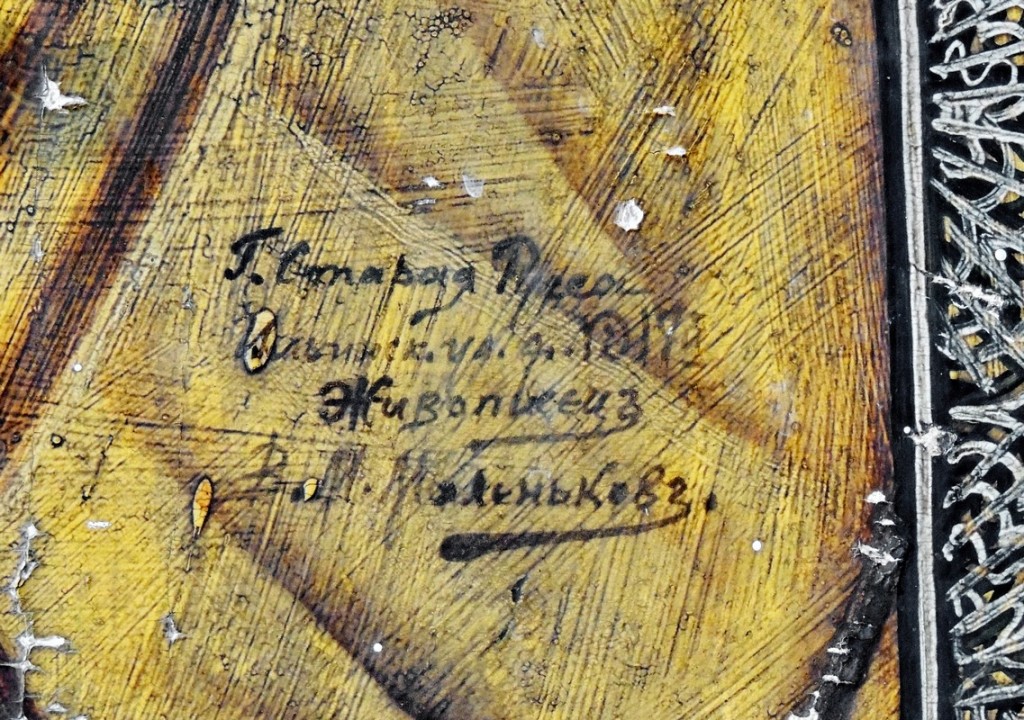 Г. Старая Русса
Ильинск. ул. д.
Живописецъ
В. М. Маленьковъ.